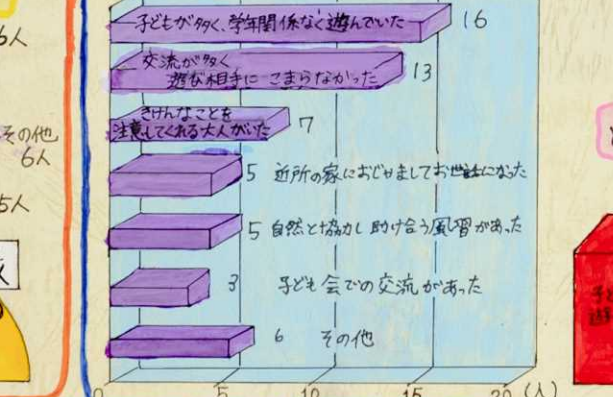 子どもが多く、学年関係なく遊んでいた 16
交流が多く
遊び相手に こまらなかった 13
きけんなことを
注意してくれる大人がいた 7
5 近所の家におじゃましてお世話になった
5 自然と協力し助け合う風習があった
3 子ども会での交流があった
6 その他
0 5 10 15 20 (人)
6人
その他
6人
5人